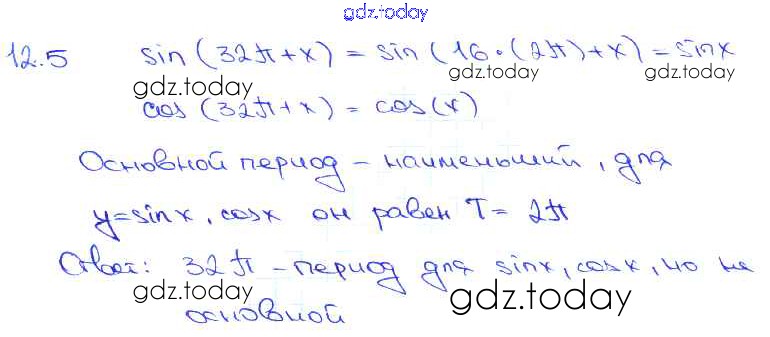 gdz.today
12.5 sin(32π+x) = sin(16·(2π)+x) = sinx
gdz.today gdz.today gdz.today
cos(32π+x) = cos(x)
Основной период - наименьший, для
y=sinx, cosx он равен T= 2π
gdz.today gdz.today
Ответ: 32π - период для sinx, cosx, но не
gdz.today gdz.today
основной